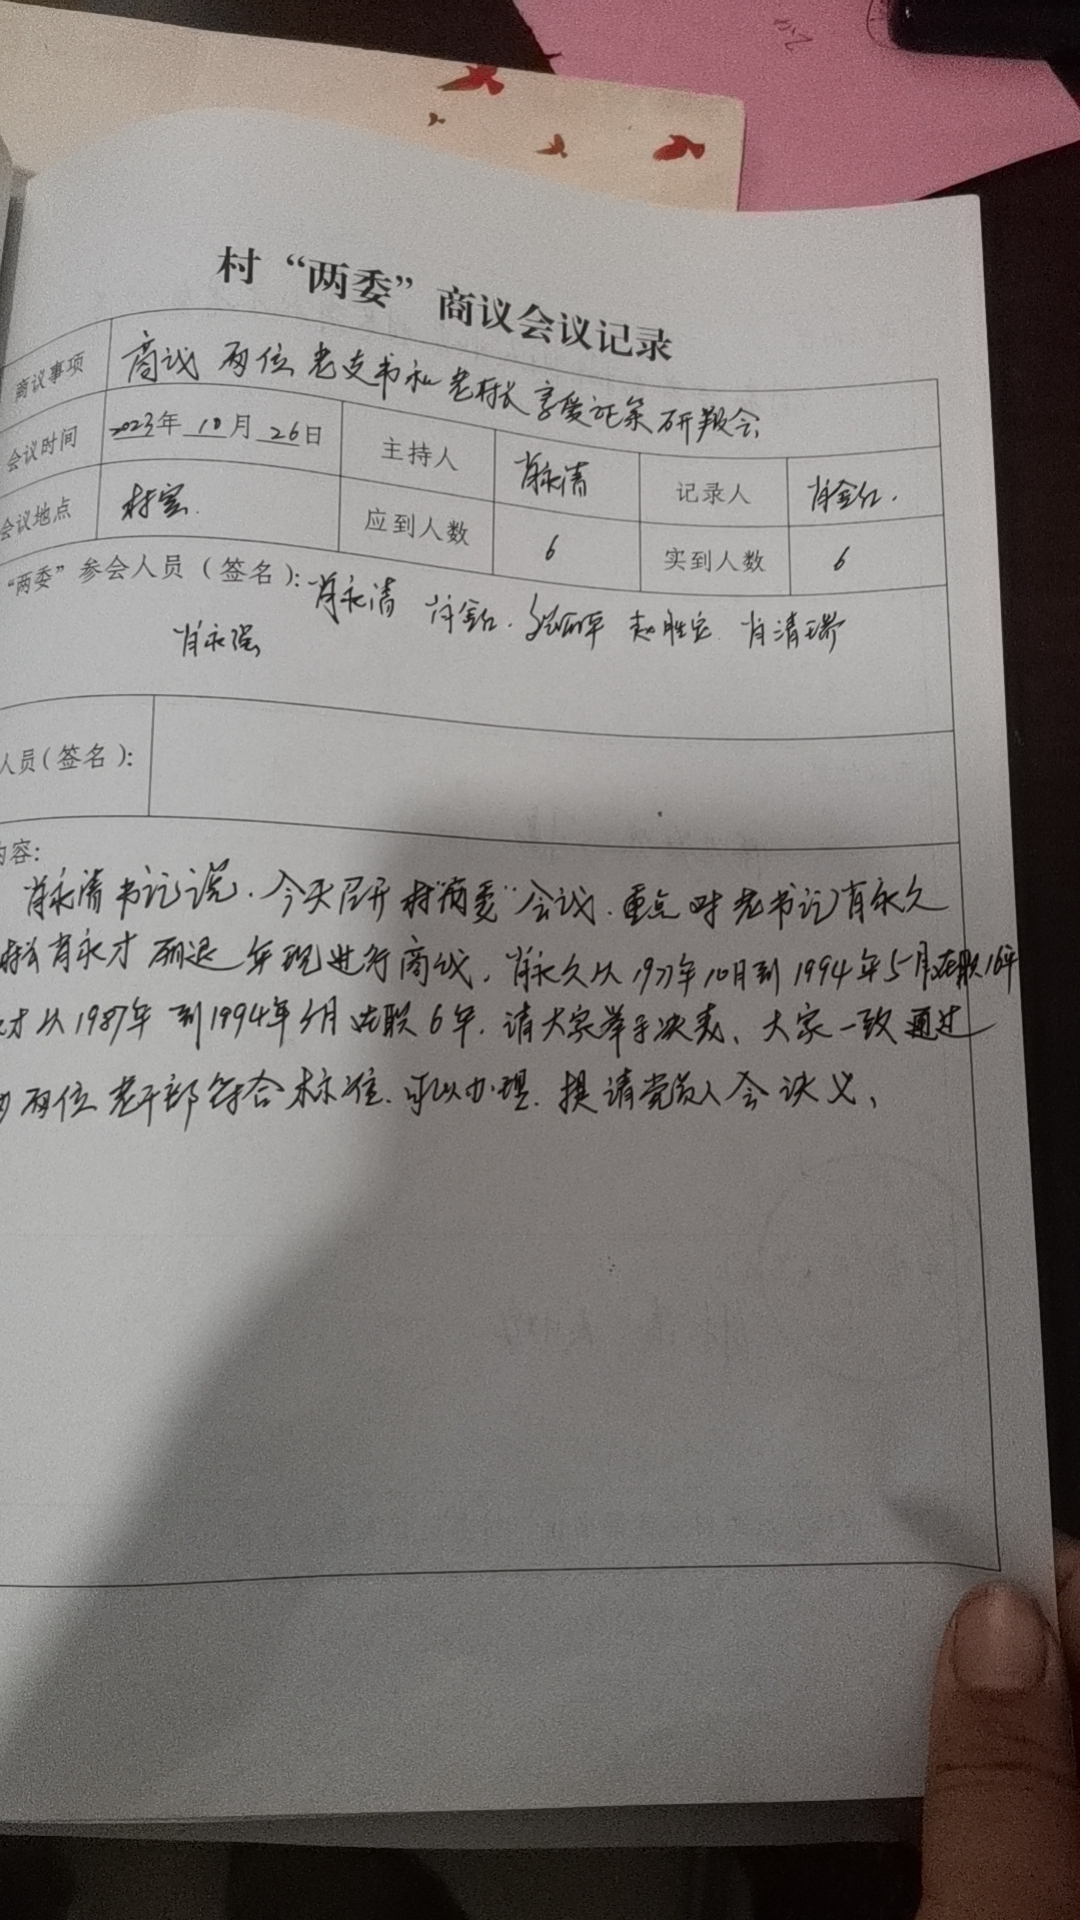 村“两委”商议会议记录
商议事项 商议 两位 老支书和老村长享受政策研判会
会议时间 2023年 10月 26日 主持人 肖永清 记录人 肖金红.
会议地点 村室. 应到人数 6 实到人数 6
“两委”参会人员（签名）: 肖永清 肖金红. 赵胜宏 肖清瑞
肖永强
人员（签名）:
内容:
肖永清书记说. 今天召开村“两委”会议. 重点对老书记肖永久
肖永才 年现进行商议, 肖永久从1977年10月到1994年5月在职16年
才从1987年到1994年5月在职6年. 请大家举手决表、大家一致通过
两位老干部符合标准. 可以办理. 提请党员人会决义、